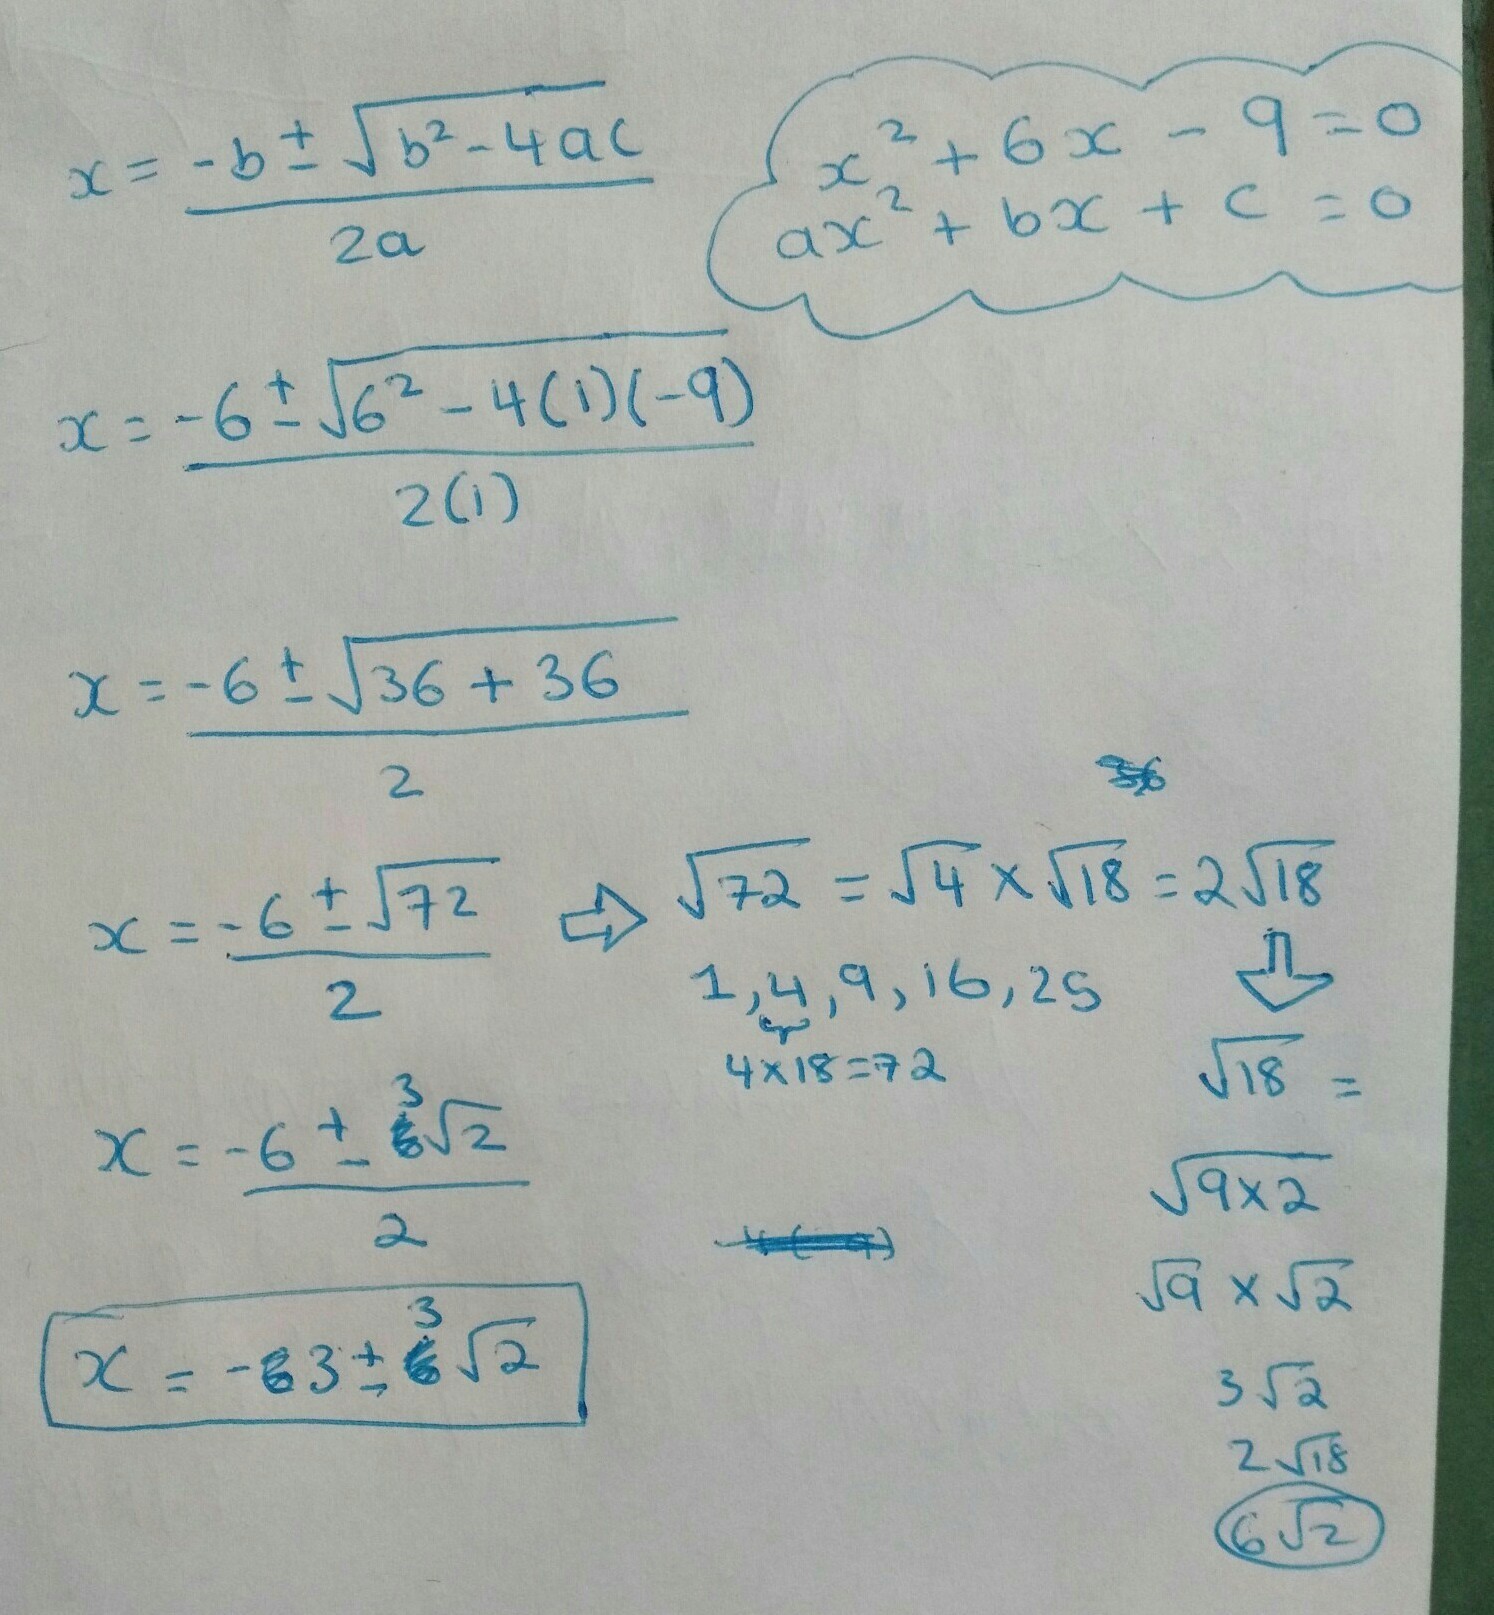 x = -b ± √b² - 4ac
2a
x² + 6x - 9 = 0
ax² + bx + c = 0
x = -6 ± √6² - 4(1)(-9)
2(1)
x = -6 ± √36 + 36
2
36
x = -6 ± √72
2
⇨ √72 = √4 × √18 = 2√18
1, 4, 9, 16, 25
4×18=72
⇩
√18 =
√9×2
√9 × √2
3√2
2√18
6√2
x = -6 ± 3√2
2
x = -3 ± 3√2